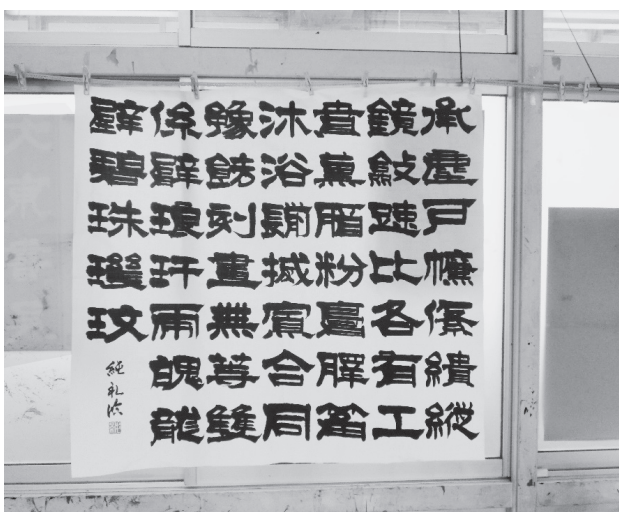 承塵戶㡘絛繢縱
鏡斂疎比各有工
賁薰脂粉膏筩
沐浴揃搣寡合同
豫飭刻畫無等雙
係臂琅玕虎魄龍
璧碧珠璣玫